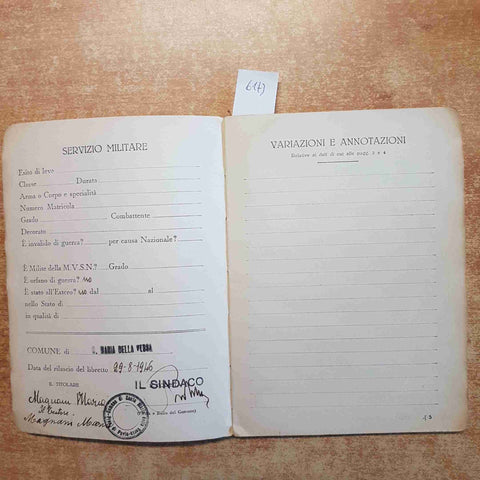 (17)
SERVIZIO MILITARE
Esito di leva
Classe Durata
Arma o Corpo e specialità
Numero Matricola
Grado Combattente
Decorato
È invalido di guerra? per causa Nazionale?
È Milite della M.V.S.N.? Grado
È orfano di guerra? no
È stato all'Estero? no dal al
nello Stato di
in qualità di
COMUNE di S. MARIA DELLA VERSA
Data del rilascio del libretto 29-8-1946
IL TITOLARE
IL SINDACO
Magnani Maria
Il Tutore
Magnani
(Bollo del Comune)
VARIAZIONI E ANNOTAZIONI
Relative ai dati di cui alle pagg. 2 e 4